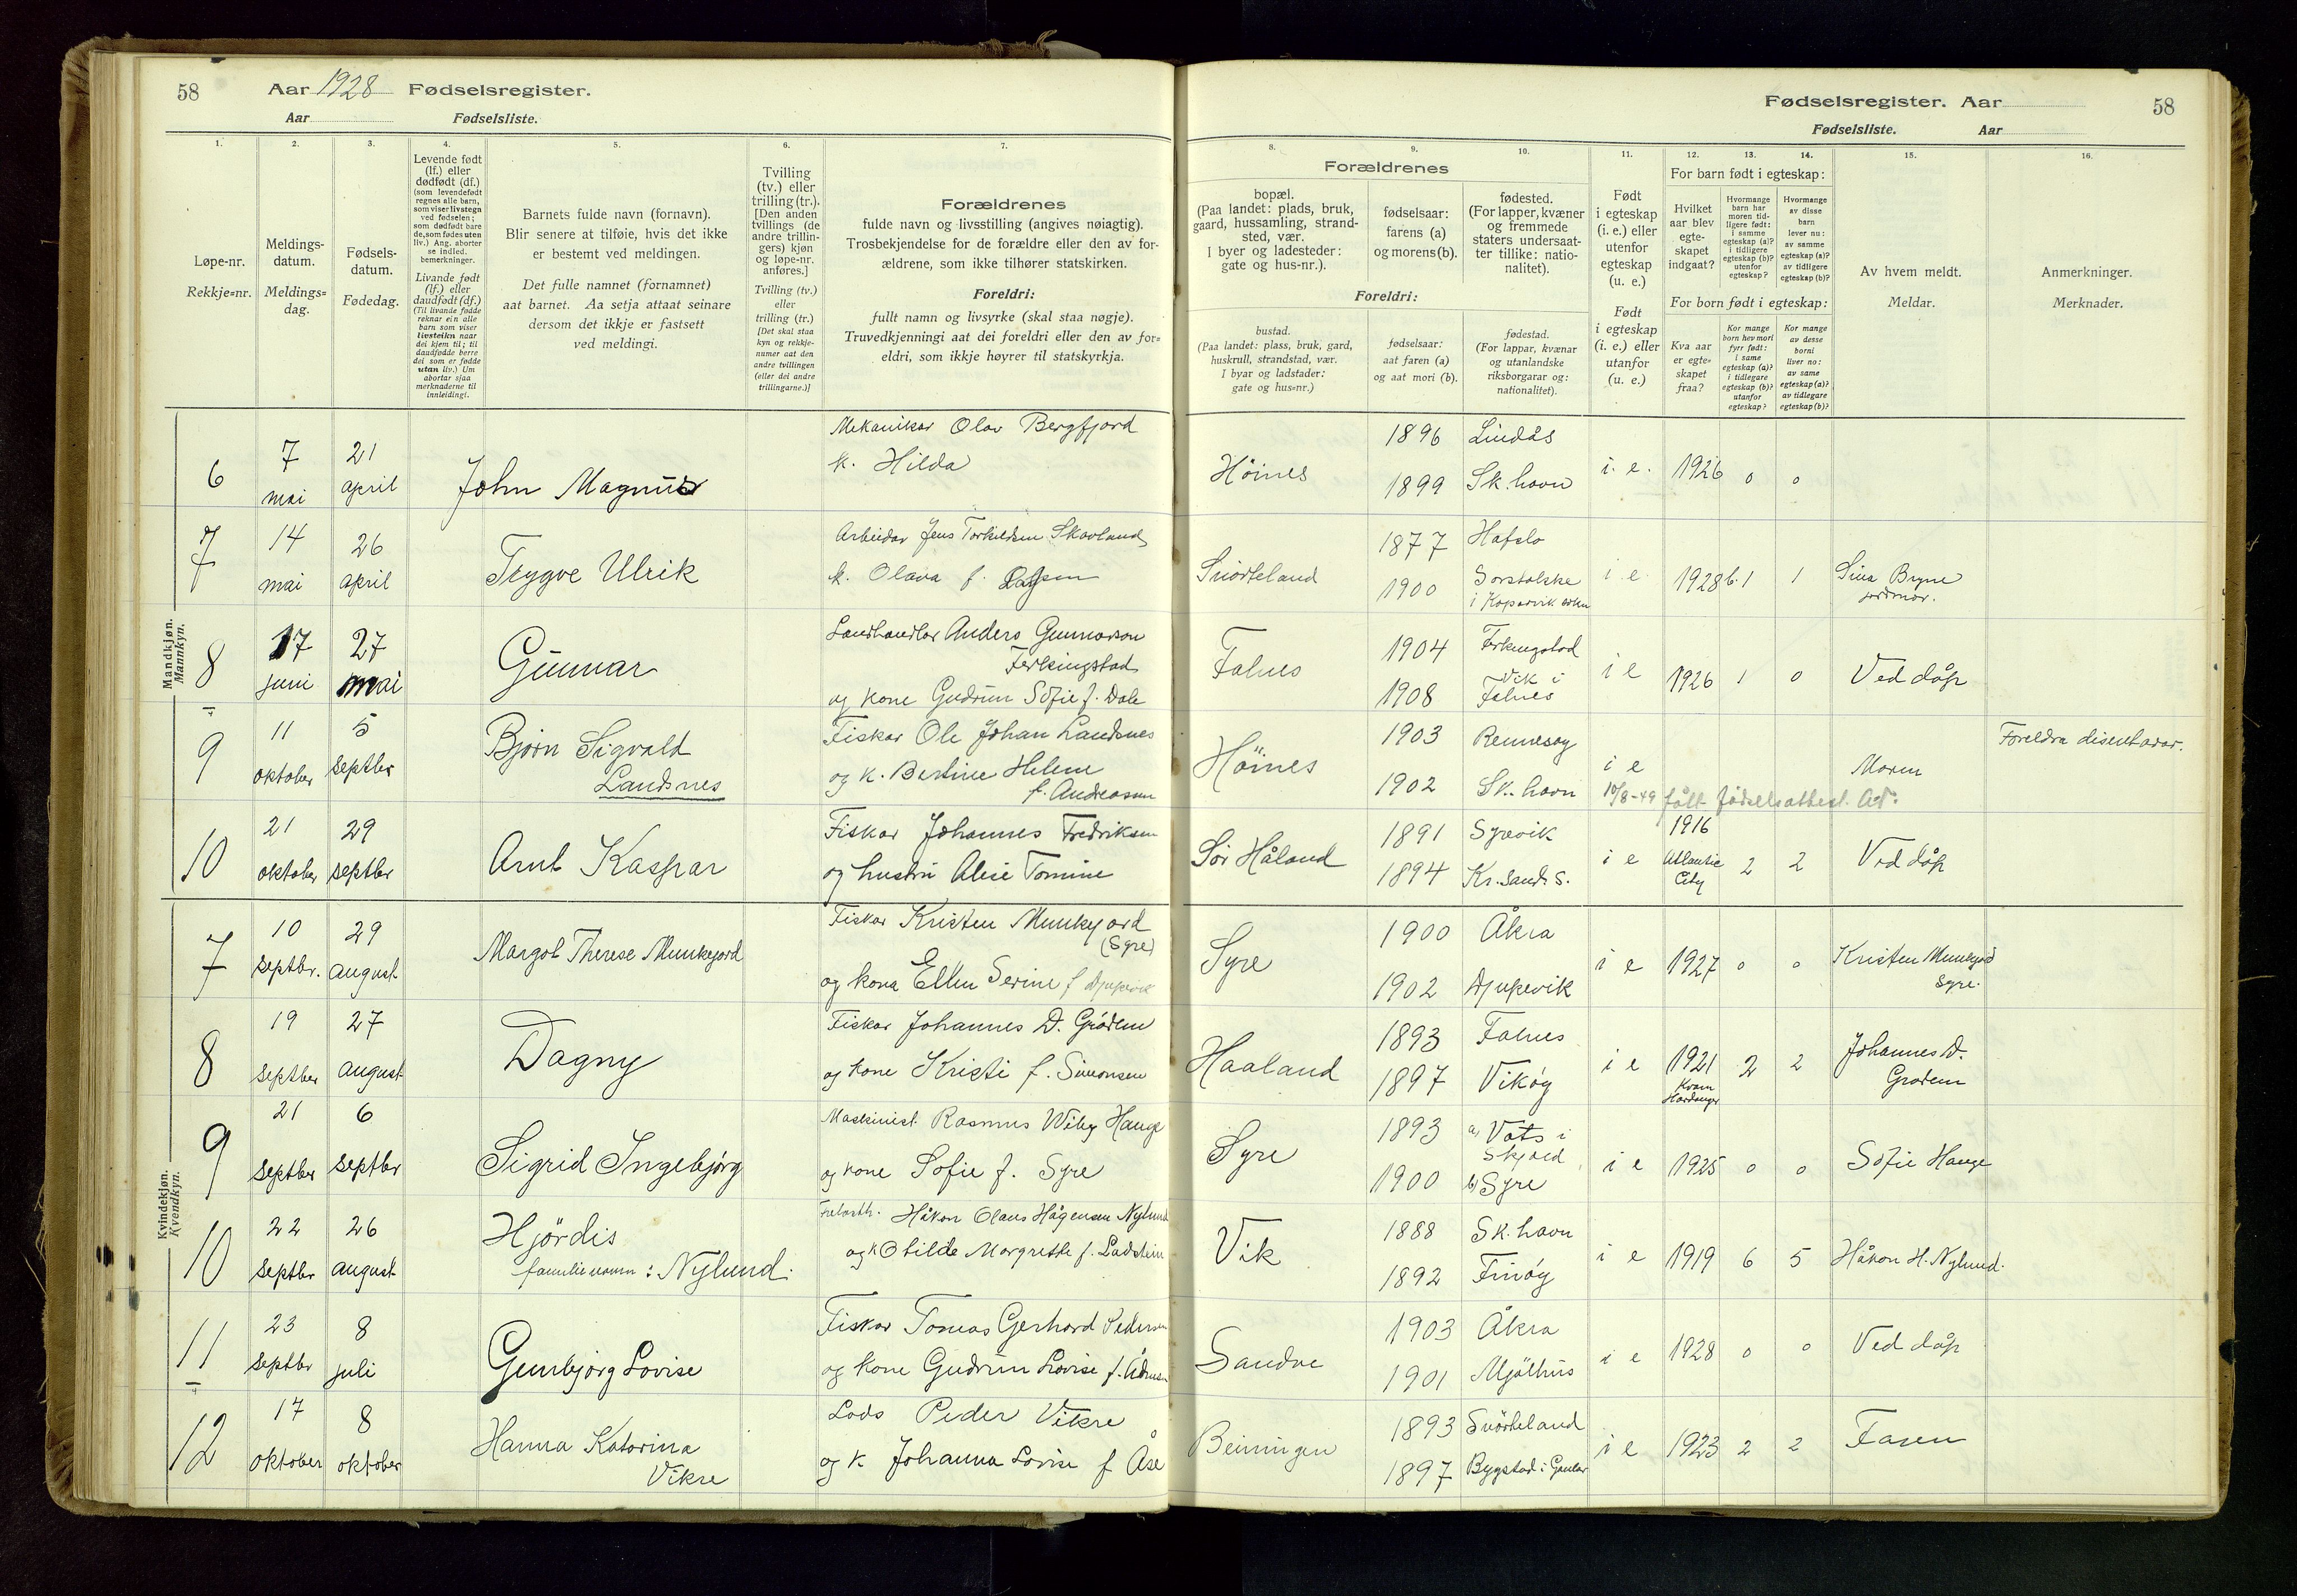 58
Aar 1928 Fødselsregister.
Aar Fødselsliste.
Fødselsregister. Aar
Fødselsliste. Aar
58
1. 2. 3. 4. 5. 6. 7. 8. 9. 10. 11. 12. 13. 14. 15. 16.
Løpe-nr.
Rekkje=nr.
Meldings-
datum.
Meldings=
dag.
Fødsels-
datum.
Fødedag.
Levende født
(lf.) eller
dødfødt (df.)
(som levendefødt
regnes alle barn,
som viser livstegn
ved fødselen;
som dødfødt bare
de, som fødes uten
liv.) Ang. aborter
se indled.
bemerkninger.
Livande født
(lf.) eller
daudfødt (df.)
(Til livande fødde
reknar ein alle
barn som viser
livsteikn naar
dei kjem til; til
daudfødde berre
dei som er fødde
utan liv.) Um
abortar sjaa
merknaderne til
innleidingi.
Barnets fulde navn (fornavn).
Blir senere at tilføie, hvis det ikke
er bestemt ved meldingen.
Det fulle namnet (fornamnet)
aat barnet. Aa setja attaat seinare
dersom det ikkje er fastsett
ved meldingi.
Tvilling
(tv.) eller
trilling (tr.).
[Den anden
tvillings (de
andre trillin-
gers) kjøn
og løpe-nr.
anføres.]
Tvilling (tv.)
eller
trilling (tr.)
[Det skal staa
kyn og rekkje-
numer aat den
andre tvillingen
(eller dei andre
trillingarne.)]
Forældrenes
fulde navn og livsstilling (angives nøiagtig).
Trosbekjendelse for de forældre eller den av for-
ældrene, som ikke tilhører statskirken.
Foreldri:
fullt namn og livsyrke (skal staa nøgje).
Truvedkjenningi aat dei foreldri eller den av for=
eldri, som ikkje høyrer til statskyrkja.
Forældrenes
bopæl.
(Paa landet: plads, bruk,
gaard, hussamling, strand-
sted, vær.
I byer og ladesteder:
gate og hus-nr.).
fødselsaar:
farens (a)
og morens (b).
fødested.
(For lapper, kvæner
og fremmede
staters undersaat-
ter tillike: natio-
nalitet).
Foreldri:
bustad.
(Paa landet: plass, bruk, gard,
huskrull, strandstad, vær.
I byar og ladstader:
gate og hus=nr.)
fødselsaar:
aat faren (a)
og aat mori (b).
fødestad.
(For lappar, kvænar
og utanlandske
riksborgarar og:
nationalitet).
Født
i egteskap
(i. e.) eller
utenfor
egteskap
(u. e.)
Født
i egteskap
(i. e.) eller
utanfor
(u. e.)
For barn født i egteskap:
Hvilket
aar blev
egte-
skapet
indgaat?
Hvormange
barn har
moren tid-
ligere født:
i samme
egteskap (a)?
i tidligere
egteskap (b)?
utenfor
egteskap?
Hvormange
av disse
barn
lever nu:
av samme
egteskap (a)?
av tidligere
egteskap (b)?
For born født i egteskap:
Kva aar
er egte=
skapet
fraa?
Kor mange
born hev mori
fyrr født:
i same
egteskap (a)?
i tidlegare
egteskap (b)?
utanfor
egteskap?
Kor mange
av desse
borni
liver no:
av same
egteskap (a)?
av tidlegare
egteskap (b)?
Av hvem meldt.
Meldar.
Anmerkninger.
Merknader.
Mandkjøn.
Mannkyn.
6 7 mai 21 april John Magnus
Mekanikar Olav Bergfjord
k. Hilda
Höines 1896 Lindås
1899 Sk.havn i. e. 1926 0 0
7 14 mai 26 april Trygve Ulrik
Arbeidar Jens Torkildsen Skavland
k. Olava f.
Snörteland 1877 Hafslo
1900 i Kopervik sokn i e 1928 b. 1 1 Sina Bryne
jordmor.
8 17 juni 27 mai Gunnar
Landhandlar Anders Gunnarson
Ferkingstad
og kone Gudrun Sofie f. Dale
Falnes 1904 Ferkingstad
1908 Vik i
Falnes i e 1926 1 0 Ved dåp
9 11 oktober 5 septbr Bjørn Sigvald
Landsnes
Fiskar Ole Johan Landsnes
og k. Bertine Helene
f. Andreasen
Höines 1903 Rennesøy
1902 Sk. havn i e Moren Foreldra disentarar.
10/8-49 fått fødselsattest. Ad.
10 21 oktober 29 septbr Arnt Kaspar
Fiskar Johannes Fredriksen
og hustru Alise Tomine
Sör Håland 1891 Syrevik
1894 Kr.sand S. i e 1916
Atlantic
City 2 2 Ved dåp
Kvindekjøn.
Kvendkyn.
7 10 septbr. 29 august Margot Therese Munkejord
Fiskar Kristen Munkejord
(Syre)
og kona Ellen Serine f Djupevik
Syre 1900 Åkra
1902 Djupevik i e 1927 0 0 Kristen Munkejord
Syre.
8 19 septber 27 august Dagny
Fiskar Johannes D. Grödem
og kone Kristi f. Simonsen
Haaland 1893 Falnes
1897 Vikøy i e 1921
Kvam
Hardanger 2 2 Johannes D.
Grødem
9 21 septbr 6 septbr Sigrid Ingebjørg
Maskinist Rasmus Wiby Hauge
og kone Sofie f. Syre
Syre 1893 a) Vats i
Skjold
1900 b) Syre i e 1925 0 0 Sofie Hauge
10 22 septbr 26 august Hjördis
familienavn: Nylund.
Håkon Olaus Hågensen Nylund
og k Otilde Margrethe f. Ladstein
Vik 1888 Sk. havn
1892 Finøy i e 1919 6 5 Håkon H. Nylund.
11 23 septbr 8 juli Gunbjørg Lovise
Fiskar Tomas Gerhard Pedersen
og kone Gudrun Lovise f.
Sandve 1903 Åkra
1901 Mjölhus i e 1928 0 0 Ved dåp
12 17 oktober 8 oktober Hanna Katarina
Vikre
Lods Peder Vikre
og k Johanna Lovise f Åse
Beiningen 1893 Snörteland
1897 Bygstad i Gaular i e 1923 2 2 Faren